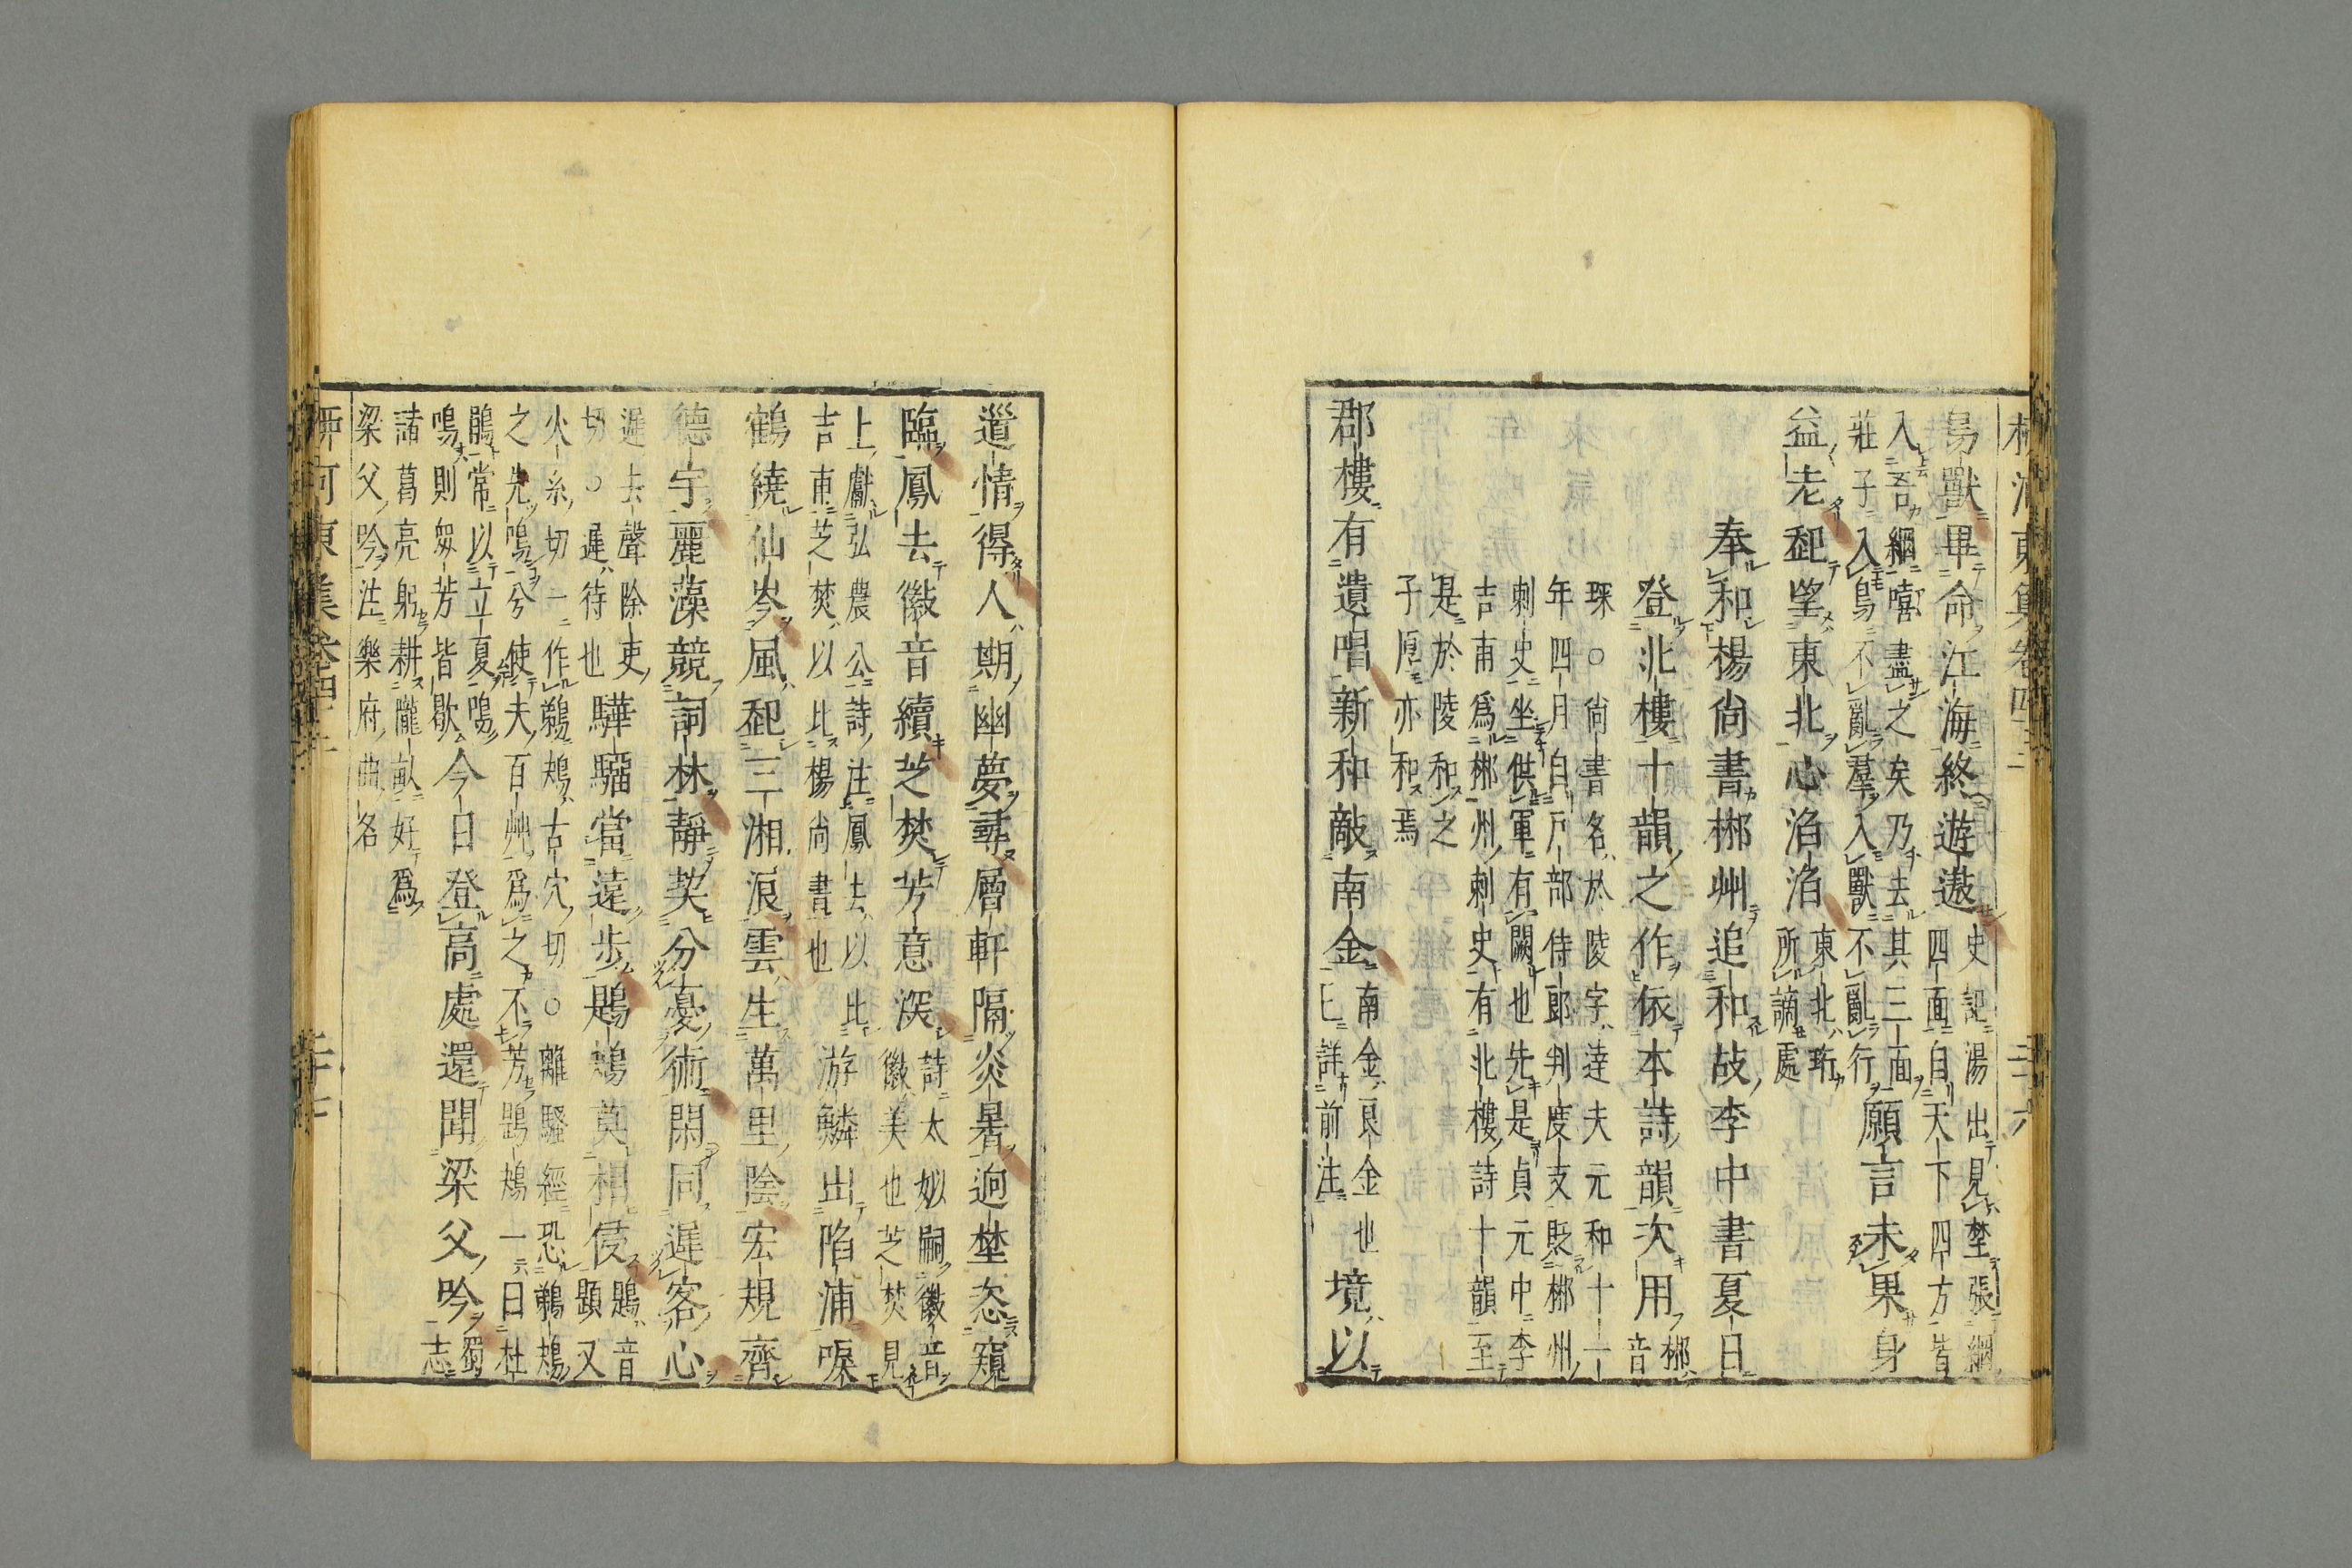 鳥獸畢命江海終遊遨史記湯出見埜張網
四面自天下四方皆
入吾網嘻盡之矣乃去其三面
莊子入鳥不亂羣入獸不亂行願言未果身
益老起望東北心滔滔東北珩
所謫處
奉和楊尚書郴州追和故李中書夏日
登北樓十韻之作依本詩韻次用郴
音
琛○尚書名於陵字達夫元和十一
年四月自戶部侍郎判度支貶郴州
刺史坐供軍有闕也先是貞元中李
吉甫爲郴州刺史有北樓詩十韻至
是於陵和之
子厚亦和焉
郡樓有遺唱新和敵南金南金良金也
已詳前注境以
道情得人期幽夢尋層軒隔炎暑迥埜恣窺
臨鳳去徽音續芝焚芳意深詩太姒嗣徽音
徽美也芝焚見
上獻弘農公詩注鳳去以比
吉甫芝焚以比楊尚書也游鱗出陷浦唳
鶴繞仙岑風起三湘浪雲生萬里陰宏規齊
德宇麗藻競詞林靜契分憂術閑同遲客心
遲去聲除吏
切○遲待也驊騮當遠步鶗鴂莫相侵鶗音
題又
火系切一作鵜鴂古穴切○離騷經恐鵜鴂
之先鳴兮使夫百艸爲之不芳鶗鴂一曰杜
鵑常以立夏鳴
鳴則衆芳皆歇今日登高處還聞梁父吟蜀
志
諸葛亮躬耕隴畝好爲
梁父吟注樂府曲名
河東集卷四十二
二十七